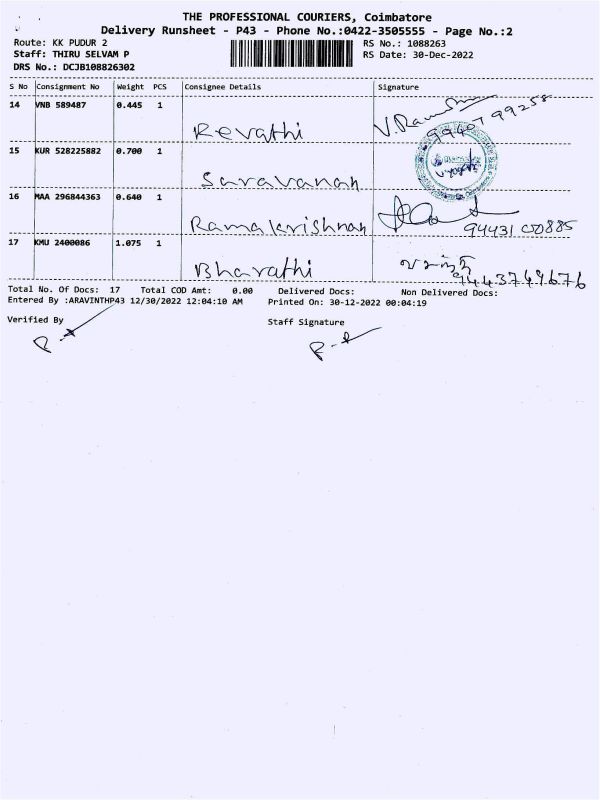 THE PROFESSIONAL COURIERS, Coimbatore
Delivery Runsheet - P43 - Phone No.:0422-3505555 - Page No.:2
Route: KK PUDUR 2 RS No.: 1088263
Staff: THIRU SELVAM P RS Date: 30-Dec-2022
DRS No.: DCJB108826302
S No Consignment No Weight PCS Consignee Details Signature
14 VNB 589487 0.445 1 Revathi V.Ramesh
15 KUR 528225882 0.700 1 Saravanan
16 MAA 296844363 0.640 1 Ramakrishnan
17 KMU 2400086 1.075 1 Bharathi 9443749676
Total No. Of Docs: 17 Total COD Amt: 0.00 Delivered Docs: Non Delivered Docs:
Entered By :ARAVINTHP43 12/30/2022 12:04:10 AM Printed On: 30-12-2022 00:04:19
Verified By Staff Signature